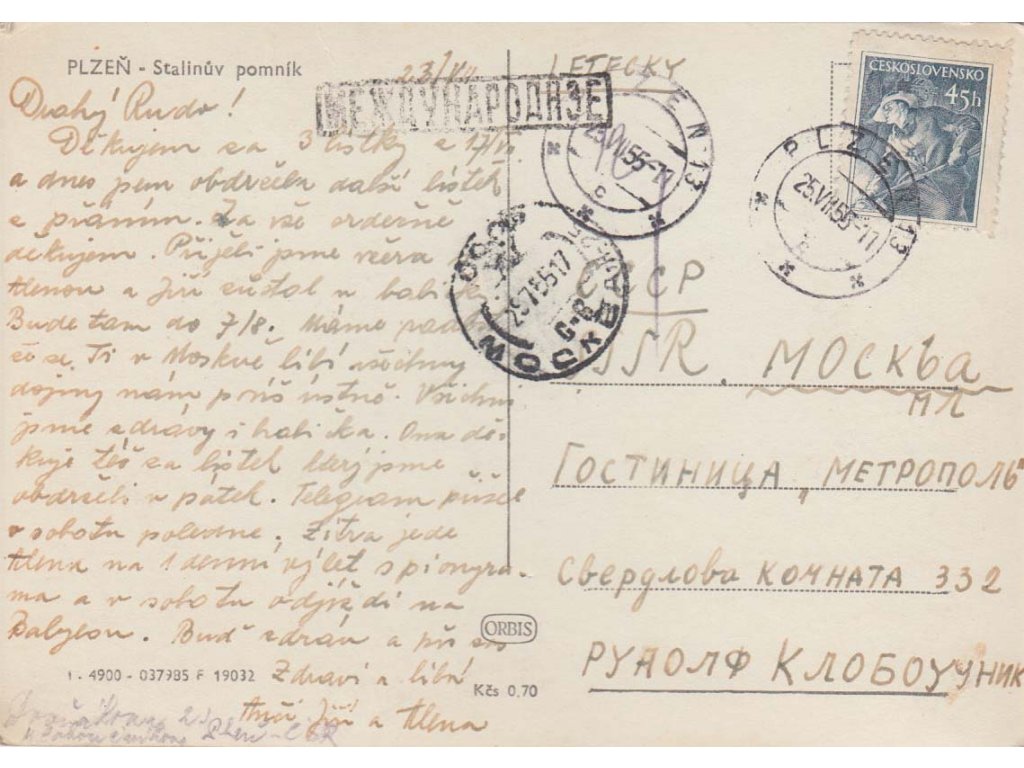 PLZEŇ - Stalinův pomník
LETECKY
ČESKOSLOVENSKO
45h
МЕЖДУНАРОДНОЕ
PLZEŇ 13
25.VII.55-17
PLZEŇ 13
25.VII.55-17
МОСКВА
29755 17
Drahý Rudo!
Děkujem za 3 lístky z 17/VII
a dnes jsem obdržela další lístek
s přáním. Za vše srdečně
děkujem. Přijeli jsme včera
Alenou a Jiří zůstal u babičky
Bude tam do 7/8. Máme radost
že se Ti v Moskvě líbí všechny
dojmy nám povíš ústně. Všichni
jsme zdrávy i babička. Ona dě-
kuje též za lístek který jsme
obdrželi v pátek. Telegram přišel
v sobotu poledne. Zítra jede
Alena na 1 denní výlet s pionýra-
ma a v sobotu odjíždí na
Babylon. Buď zdráv a
Zdraví a líbá
Jiří a Alena
СССР
SSSR. МОСКЬА
ГОСТИНИЦА „МЕТРОПОЛЬ
Свердлова КОЧНАТА 332
РУДОЛФ КЛОБОУЧНИК
ORBIS
1 - 4900 - 037985 F 19032
Kčs 0,70
Plzeň - ČSR